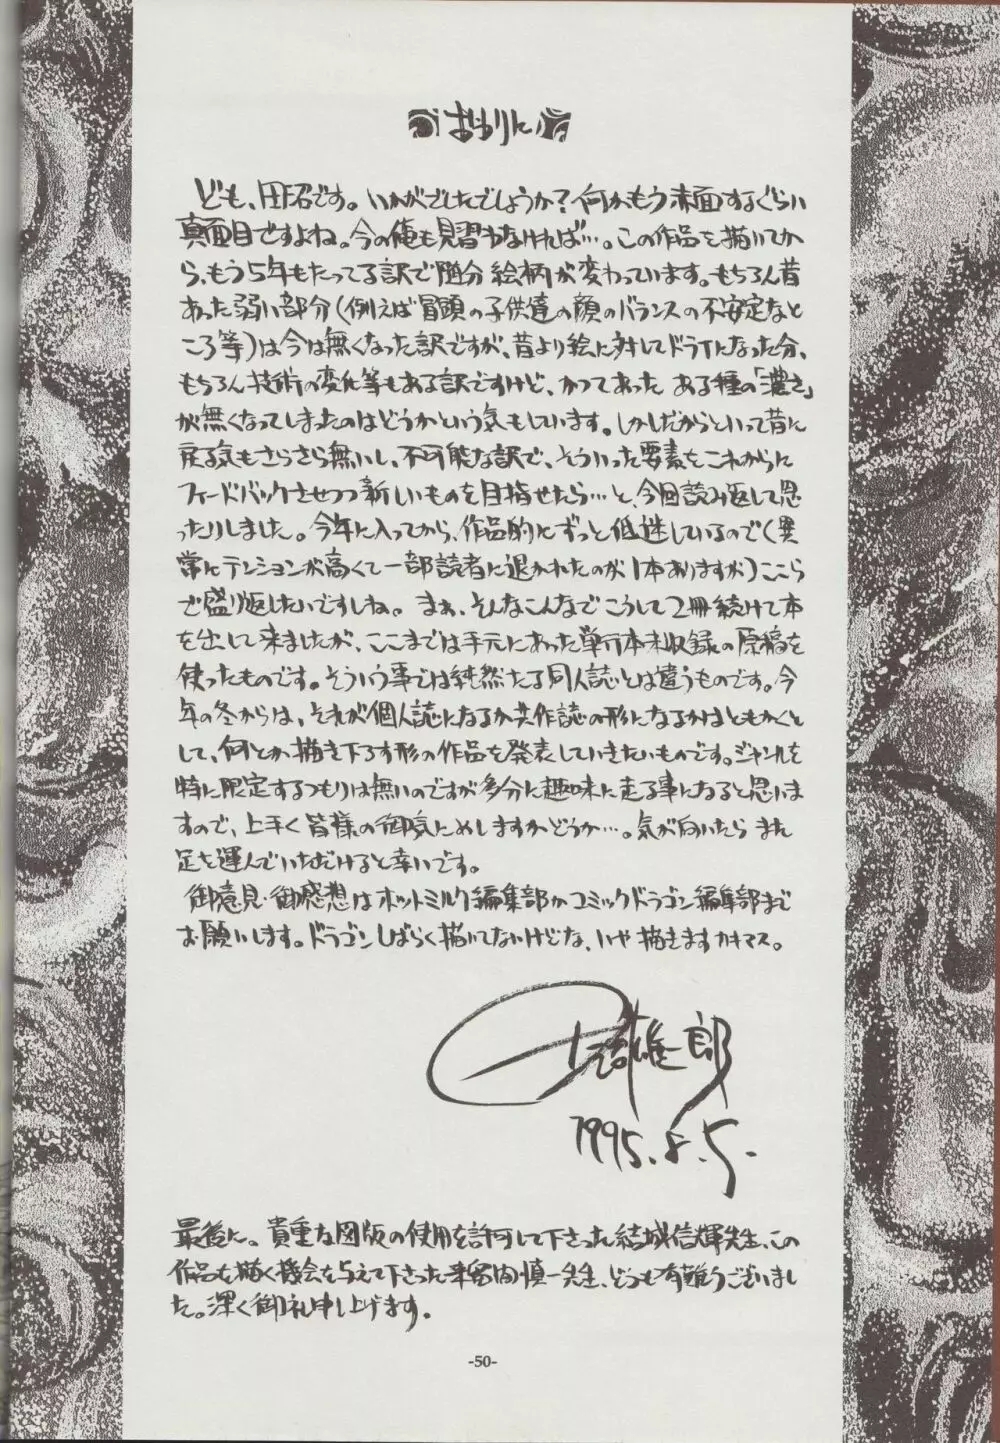 おわりに
ども、田沼です。いかがでしたでしょうか?何かもう赤面するぐらい
真面目ですよね。今の俺も見習わなければ…。この作品を描いてか
ら、もう5年もたってる訳で随分絵柄が変わっています。もちろん昔
あった弱い部分(例えば冒頭の子供達の顔のバランスの不安定なと
ころ等)は今は無くなった訳ですが、昔より絵に対してドライになった分、
もちろん技術の変化等もある訳ですけど、かつてあった ある種の「濃さ」
が無くなってしまったのはどうかという気もしています。しかしだからといって昔に
戻る気もさらさら無いし、不可能な訳で、そういった要素をこれからに
フィードバックさせつつ新しいものを目指せたら…と、今回読み返して思
ったりしました。今年に入ってから、作品的にずっと低迷しているので(異
常にテンションが高くて一部読者に退かれたのが1本ありますが)ここら
で盛り返したいですしね。まぁ、そんなこんなでこうして2冊続けて本
を出して来ましたが、ここまでは手元にあった単行本未収録の原稿を
使ったものです。そういう事では純然たる同人誌とは違うものです。今
年の冬からは、それが個人誌になるか共作誌の形になるかはともかくと
して、何とか描き下ろす形の作品を発表していきたいものです。ジャンルを
特に限定するつもりは無いのですが多分に趣味に走る事になると思いま
すので、上手く皆様の御気にめしますかどうか…。気が向いたらまた
足を運んでいただけると幸いです。
御意見・御感想はホットミルク編集部かコミックドラゴン編集部まで
お願いします。ドラゴンしばらく描いてないけどな、いや描きますカキマス。
雄一郎
1995.8.5.
最後に。貴重な図版の使用を許可して下さった結城信輝先生、この
作品を描く機会を与えて下さった津留内慎一先生、どうも有難うございまし
た。深く御礼申し上げます。
-50-